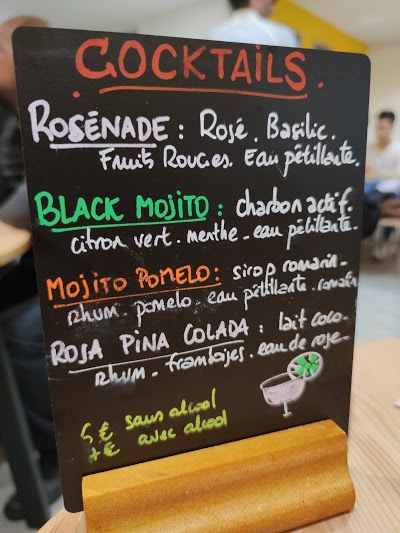 COCKTAILS.
ROSÉNADE : Rosé. Basilic.
Fruits Rouges. Eau pétillante.
BLACK MOJITO : charbon actif.
citron vert. menthe - eau pétillante.
MOJITO POMELO : sirop romarin -
rhum. pomelo. eau pétillante. romarin
ROSA PINA COLADA : lait coco -
rhum - framboises. eau de rose -
5€ sans alcool
€ avec alcool